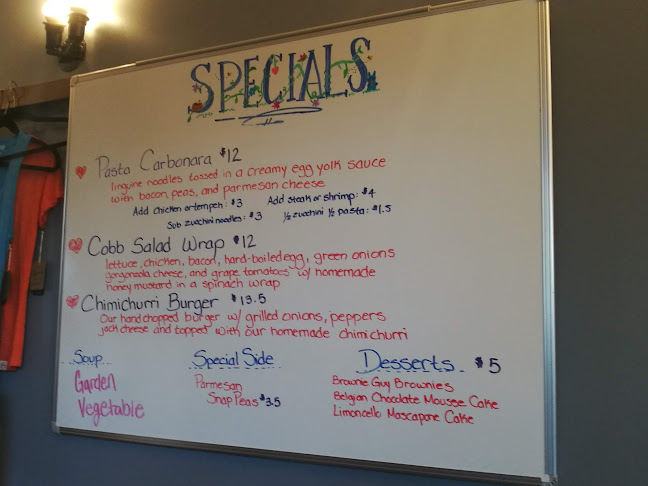 SPECIALS
Pasta Carbonara $12
linguine noodles tossed in a creamy egg yolk sauce
with bacon, peas, and parmesan cheese
Add chicken or tempeh: $3 Add steak or shrimp: $4
Sub zucchini noodles: $3 1/2 zucchini 1/2 pasta: $1.5
Cobb Salad Wrap $12
lettuce, chicken, bacon, hard-boiled egg, green onions
gorgonzola cheese, and grape tomatoes w/ homemade
honey mustard in a spinach wrap
Chimichurri Burger $13.5
Our hand chopped burger w/ grilled onions, peppers
jack cheese and topped with our homemade chimichurri
Soup
Garden
Vegetable
Special Side
Parmesan
Snap Peas $3.5
Desserts $5
Brownie Guy Brownies
Belgian Chocolate Mousse Cake
Limoncello Mascapone Cake